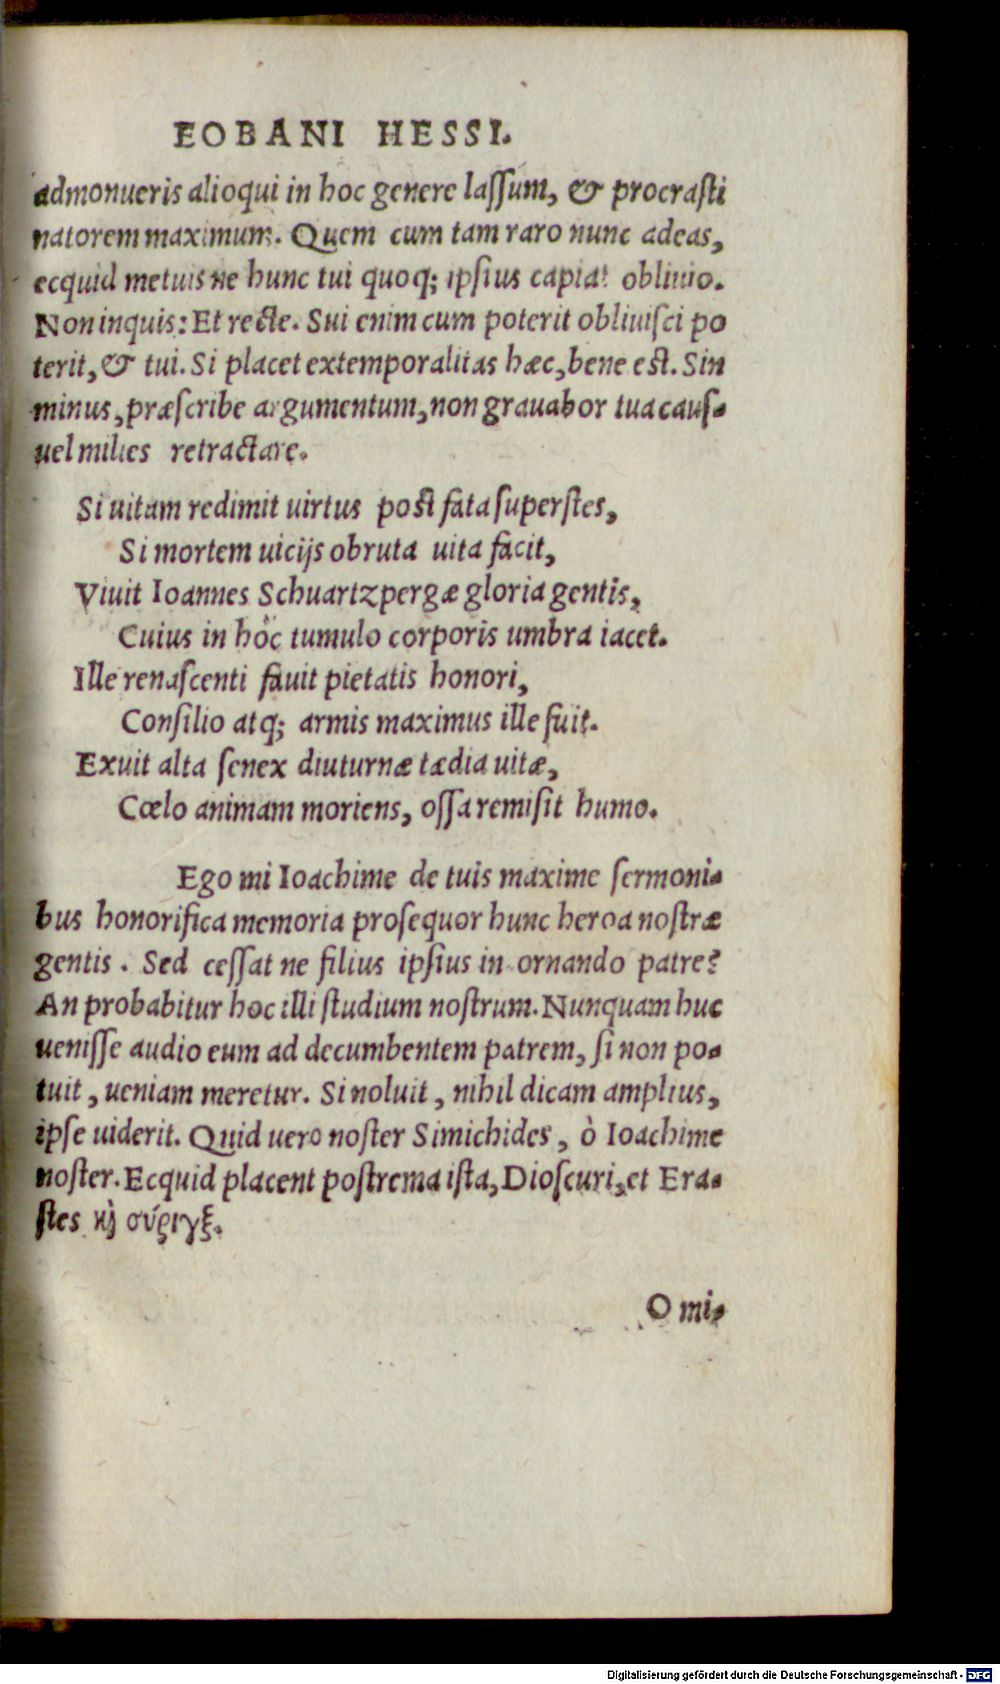 EOBANI HESSI.
admonueris alioqui in hoc genere lassum, & procrasti
natorem maximum. Quem cum tam raro nunc adeas,
ecquid metuis ne hunc tui quoq; ipsius capiat obliuio.
Non inquis: Et recte. Sui enim cum poterit obliuisci po
terit, & tui. Si placet extemporalitas hæc, bene est. Sin
minus, præscribe argumentum, non grauabor tua caus-
uel milies retractare.
Si uitam redimit uirtus post fata superstes,
Si mortem uicijs obruta uita facit,
Viuit Ioannes Schuartzpergæ gloria gentis,
Cuius in hôc tumulo corporis umbra iacet.
Ille renascenti fauit pietatis honori,
Consilio atq; armis maximus ille fuit.
Exuit alta senex diuturnæ tædia uitæ,
Cœlo animam moriens, ossa remisit humo.
Ego mi Ioachime de tuis maxime sermoni-
bus honorifica memoria prosequor hunc heroa nostræ
gentis. Sed cessat ne filius ipsius in ornando patre?
An probabitur hoc illi studium nostrum. Nunquam huc
uenisse audio eum ad decumbentem patrem, si non po-
tuit, ueniam meretur. Si noluit, nihil dicam amplius,
ipse uiderit. Quid uero noster Simichides, ò Ioachime
noster. Ecquid placent postrema ista, Dioscuri, et Era-
stes ϗ̀ σύριγξ.
O mi-
Digitalisierung gefördert durch die Deutsche Forschungsgemeinschaft - DFG